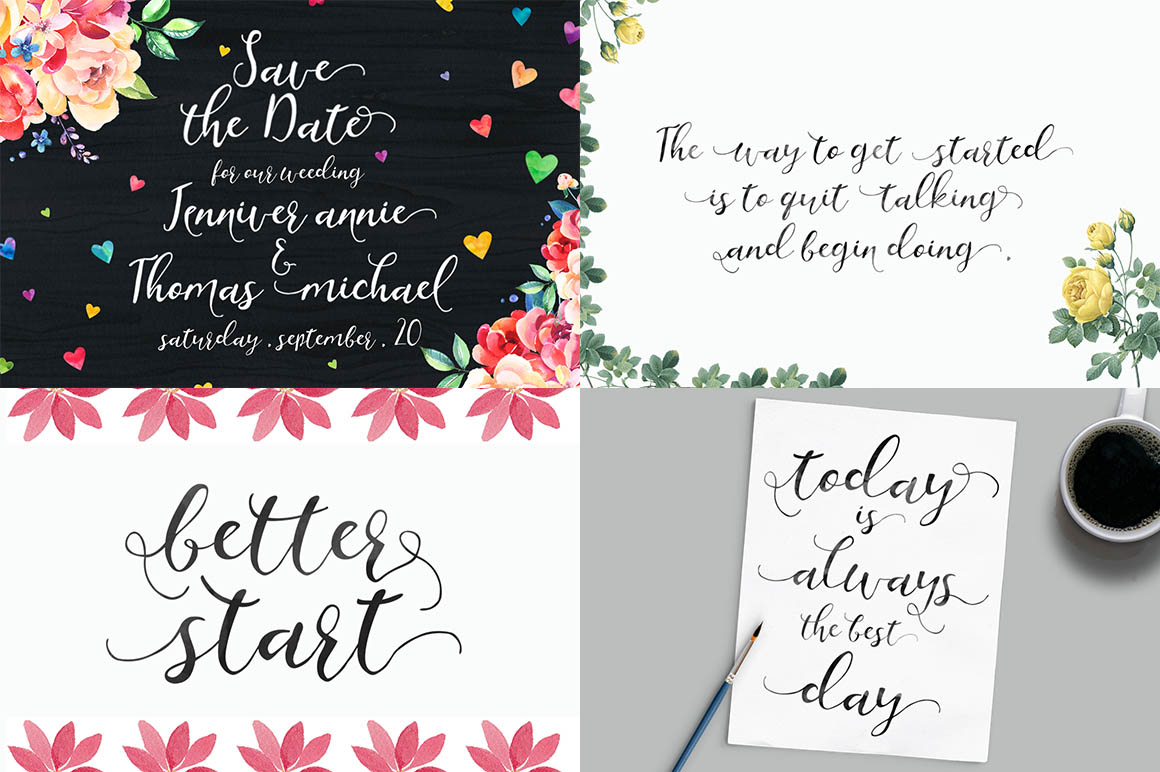 Save
the Date
for our weeding
Jenniver annie
&
Thomas michael
saturday . september . 20
The way to get started
is to quit talking
and begin doing .
better
start
today
is
always
the best
day